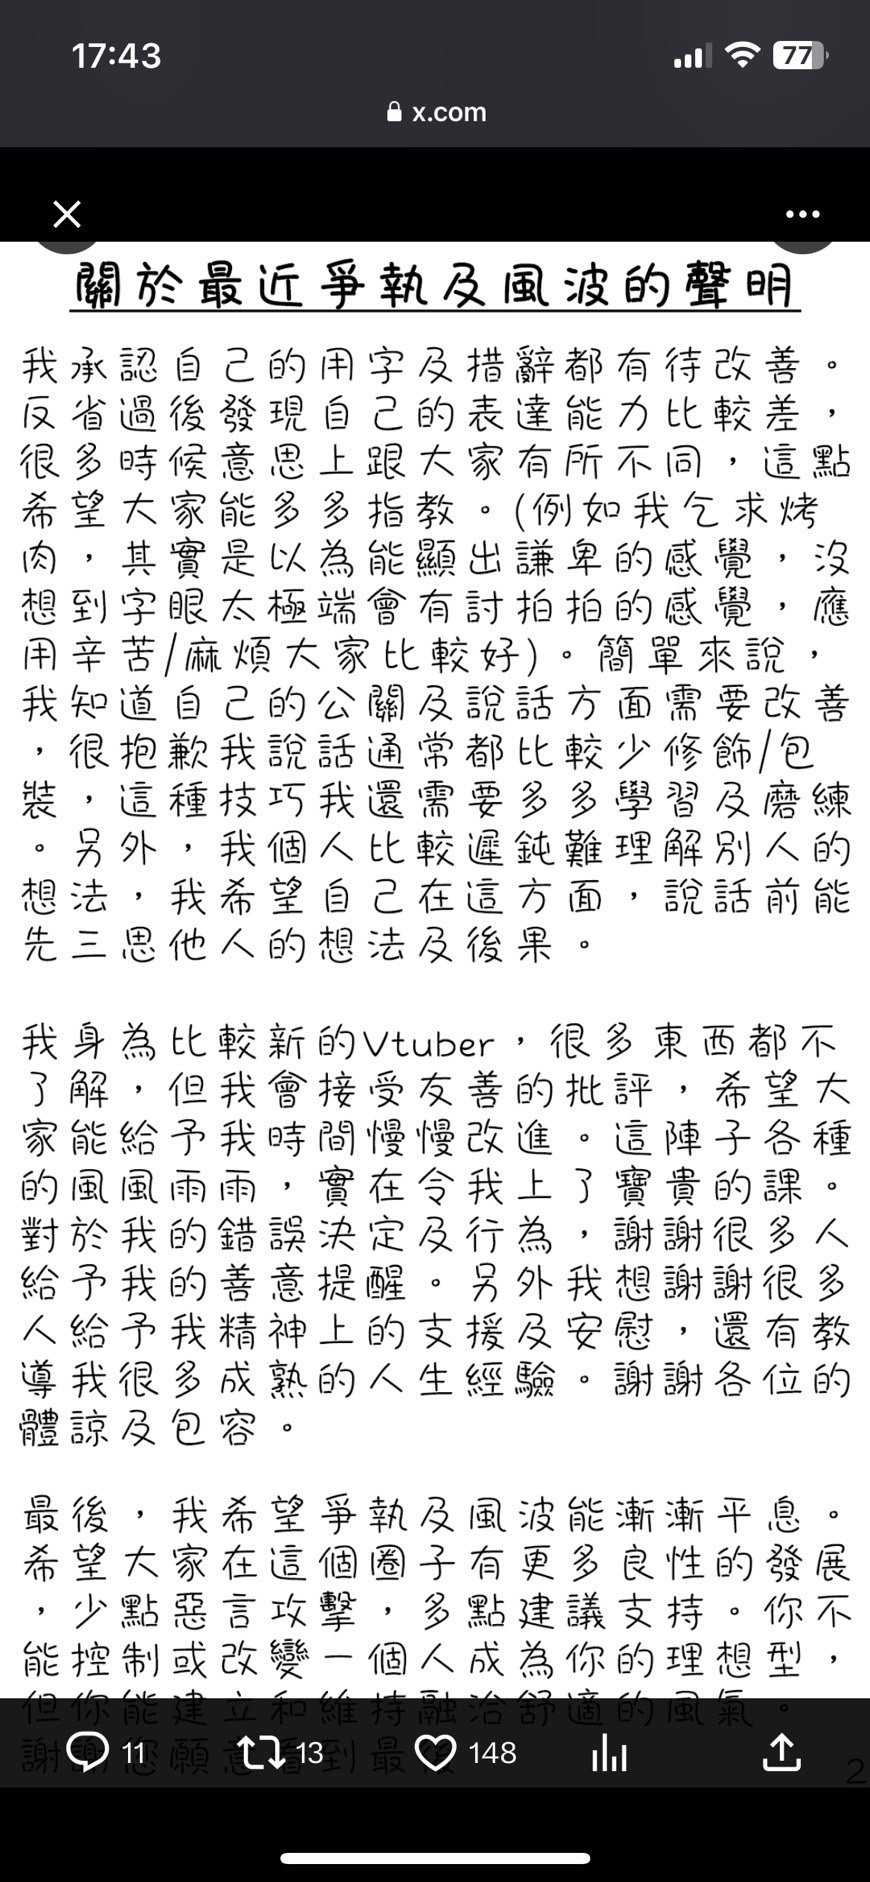 17:43
77
x.com
關於最近爭執及風波的聲明
我承認自己的用字及措辭都有待改善。
反省過後發現自己的表達能力比較差，
很多時候意思上跟大家有所不同，這點
希望大家能多多指教。(例如我乞求烤
肉，其實是以為能顯出謙卑的感覺，沒
想到字眼太極端會有討拍拍的感覺，應
用辛苦/麻煩大家比較好)。簡單來說，
我知道自己的公關及說話方面需要改善
，很抱歉我說話通常都比較少修飾/包
裝，這種技巧我還需要多多學習及磨練
。另外，我個人比較遲鈍難理解別人的
想法，我希望自己在這方面，說話前能
先三思他人的想法及後果。
我身為比較新的Vtuber，很多東西都不
了解，但我會接受友善的批評，希望大
家能給予我時間慢慢改進。這陣子各種
的風風雨雨，實在令我上了寶貴的課。
對於我的錯誤決定及行為，謝謝很多人
給予我的善意提醒。另外我想謝謝很多
人給予我精神上的支援及安慰，還有教
導我很多成熟的人生經驗。謝謝各位的
體諒及包容。
最後，我希望爭執及風波能漸漸平息。
希望大家在這個圈子有更多良性的發展
，少點惡言攻擊，多點建議支持。你不
能控制或改變一個人成為你的理想型，
但你能建立和維持融洽舒適的風氣。
謝謝您願意看到最後
11 13 148
2